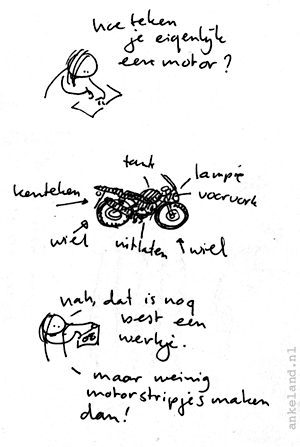 hoe teken
je eigenlijk
eens motor?
tank
lampje
kenteken
voorvork
wiel
uitlaten
wiel
nah, dat is nog
best een
werkje.
maar weinig
motorstripjes maken
dan!
ankeland.nl